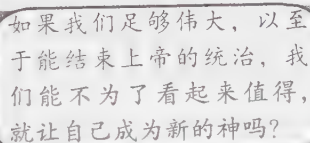 如果我们足够伟大，以至
于能结束上帝的统治，我
们能不为了看起来值得，
就让自己成为新的神吗？